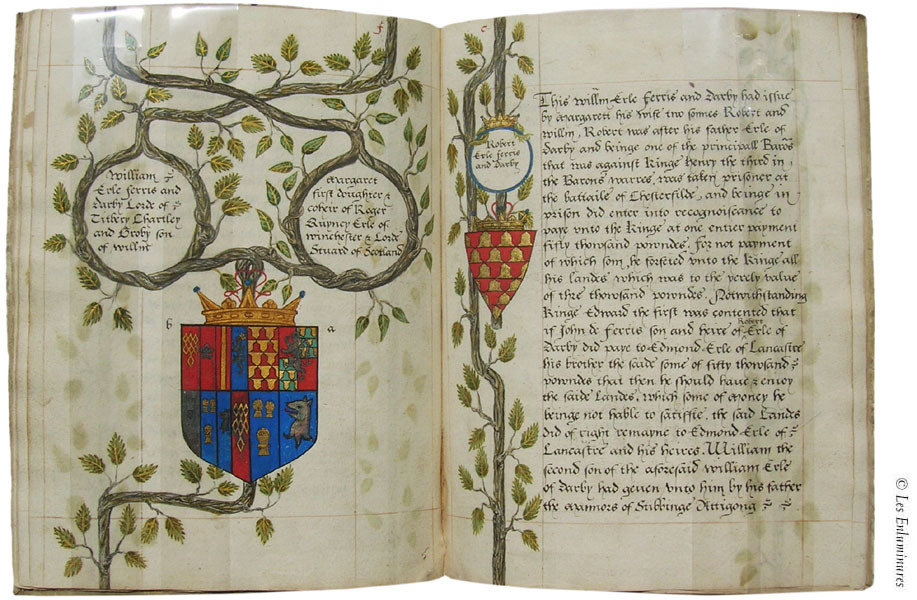 f
William
Erle ferris and
Darby Lorde of
Titbery Chartley
and Groby son
of willm
Margaret
first doughter &
coheir of Roger
Quyncy Erle of
winchester & Lorde
Stuard of Scotland
b
a
c
Robert
Erle ferris
and Darby
This willm Erle ferris and darby had issue
by margarett his wife two sonnes Robert and
willm, Robert was after his father Erle of
Darby and beinge one of the principall Barōs
that was against Kinge henry the third in
the Barons warres, was taken prisoner at
the battaile of Chesterfilde, and beinge in
prison did enter into recognoiscance to
paye vnto the Kinge at one entier payment
fifty thowsand powndes. for not payment
of which som, he forfeted vnto the Kinge all
his landes which was to the yerely value
of thre thowsand powndes. Notwithstanding
Kinge Edward the first was contented that
if John de ferris son and heire of Robert Erle of
Darby did paye to Edmond Erle of Lancastre
his brother the saide some of fifty thowsand
powndes that then he should have & enioy
the saide Landes, which some of money he
beinge not hable to satisfie, the said Landes
did of right remayne to Edmond Erle of
Lancastre and his heires. William the
second son of the aforesaid william Erle
of darby had geven vnto him by his father
the mannors of Stibbinge
© Les Enluminures